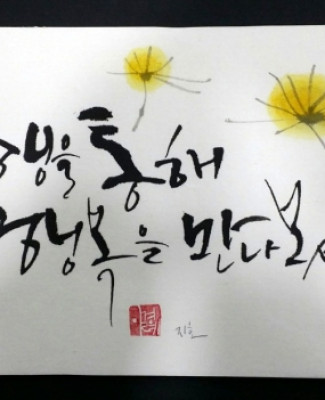 행을 통해
행복을 만나보